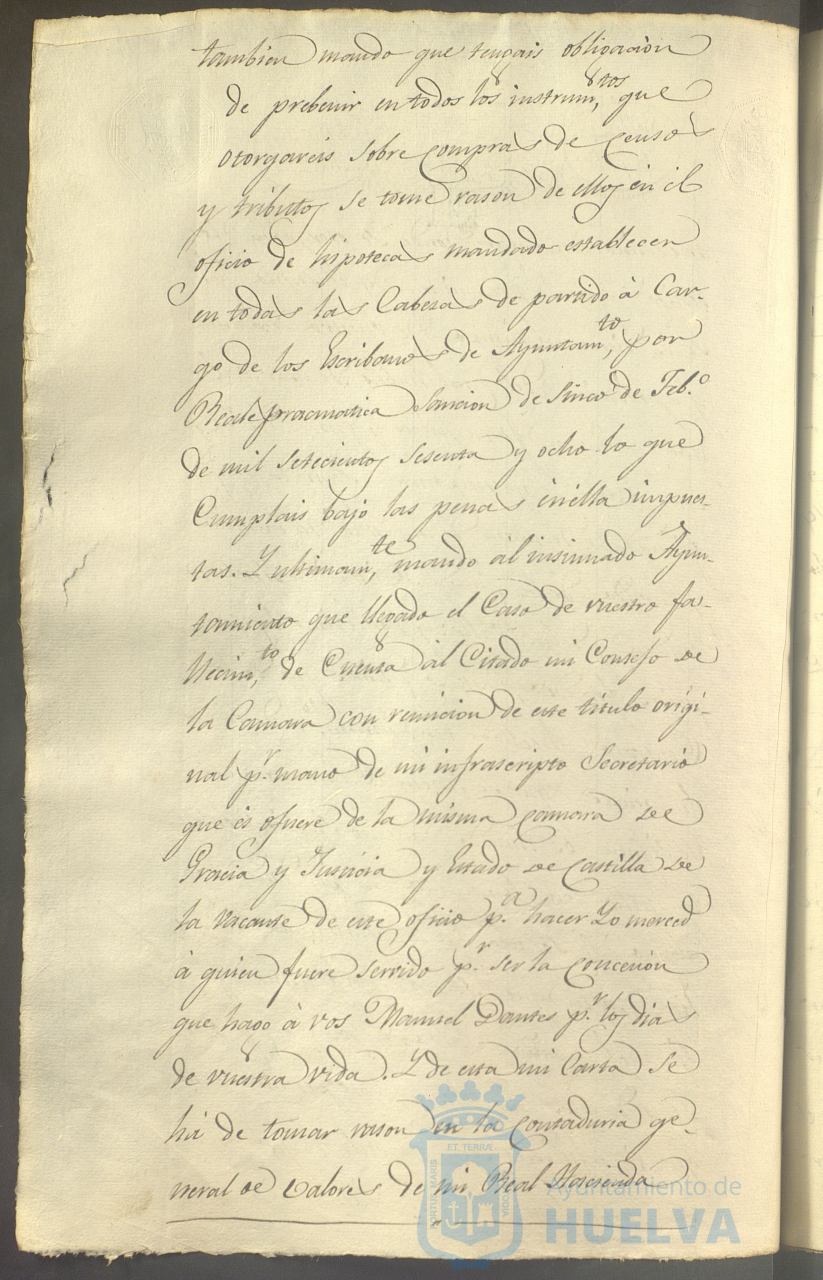 tambien mando que tengais obligacion
de prebenir en todos los instrum,tos que
otorgareis sobre compras de censos
y tributos se tome rason de ellos en el
oficio de hipotecas mandado establecer
en todas las Cabesas de partido à Car-
go de los Escribanos de Ayuntam,to por
Real pracmatica sancion de sinco de Feb.o
de mil setecientos sesenta y ocho lo que
Cumplais bajo las penas en ella impues-
tas. Y ultimam,te mando àl insinuado Ayun-
tamiento que llegado el Caso de vuestro fa-
llecim,to de Cuenta àl Citado mi Consejo de
la Camara con remicion de este titulo origi-
nal p.r mano de mi infrascripto Secretario
que es ofuere de la misma camara de
Gracia y Justicia y Estado de Castilla de
la vacante de este oficio p.a hacer Yo merced
à quien fuere servido p.r ser la concecion
que hago à vos Manuel Dantes p.r los dias
de vuestra vida. Y de esta mi Carta se
há de tomar rason en la contaduria ge-
neral de valores de mi Real Hacienda
Ayuntamiento de
HUELVA